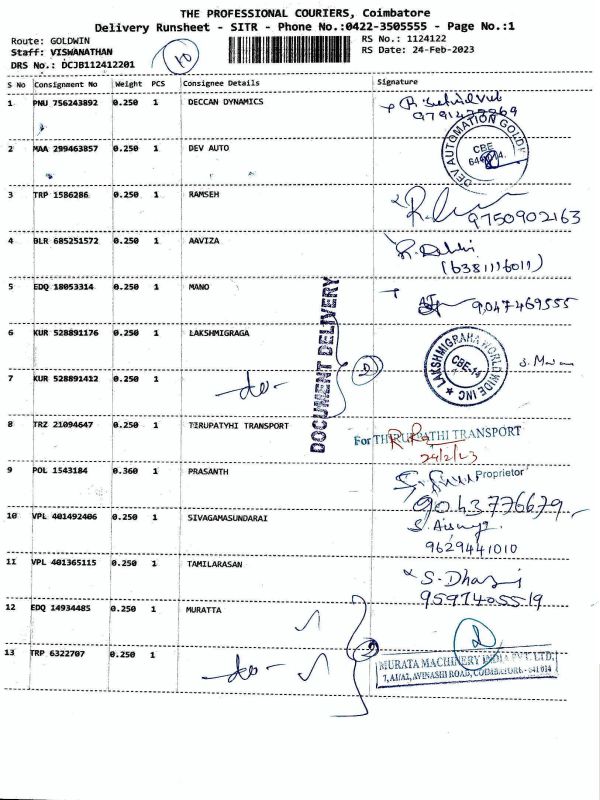 THE PROFESSIONAL COURIERS, Coimbatore
Delivery Runsheet - SITR - Phone No.:0422-3505555 - Page No.:1
Route: GOLDWIN
RS No.: 1124122
Staff: VISWANATHAN
RS Date: 24-Feb-2023
DRS No.: DCJB112412201
10
S No Consignment No Weight PCS Consignee Details Signature
1 PNU 756243892 0.250 1 DECCAN DYNAMICS
2 MAA 299463857 0.250 1 DEV AUTO
DEV AUTOMATION GOLD
CBE
3 TRP 1586286 0.250 1 RAMSEH
9750902163
4 BLR 685251572 0.250 1 AAVIZA
(6381116011)
5 EDQ 18053314 0.250 1 MANO
9047469555
6 KUR 528891176 0.250 1 LAKSHMIGRAGA
LAKSHMIGRAHA WORLD WIDE INC
CBE-14
7 KUR 528891412 0.250 1 -do-
2
DOCUMENT DELIVERY
8 TRZ 21094647 0.250 1 TIRUPATYHI TRANSPORT
For THIRUPATHI TRANSPORT
24/2/23
Proprietor
9 POL 1543184 0.360 1 PRASANTH
9043776679
10 VPL 401492406 0.250 1 SIVAGAMASUNDARAI
9629441010
11 VPL 401365115 0.250 1 TAMILARASAN
9597405519
12 EDQ 14934485 0.250 1 MURATTA
13 TRP 6322707 0.250 1 -do-
2
MURATA MACHINERY INDIA PVT. LTD.
7, A1/A2, AVINASHI ROAD, COIMBATORE - 641 014